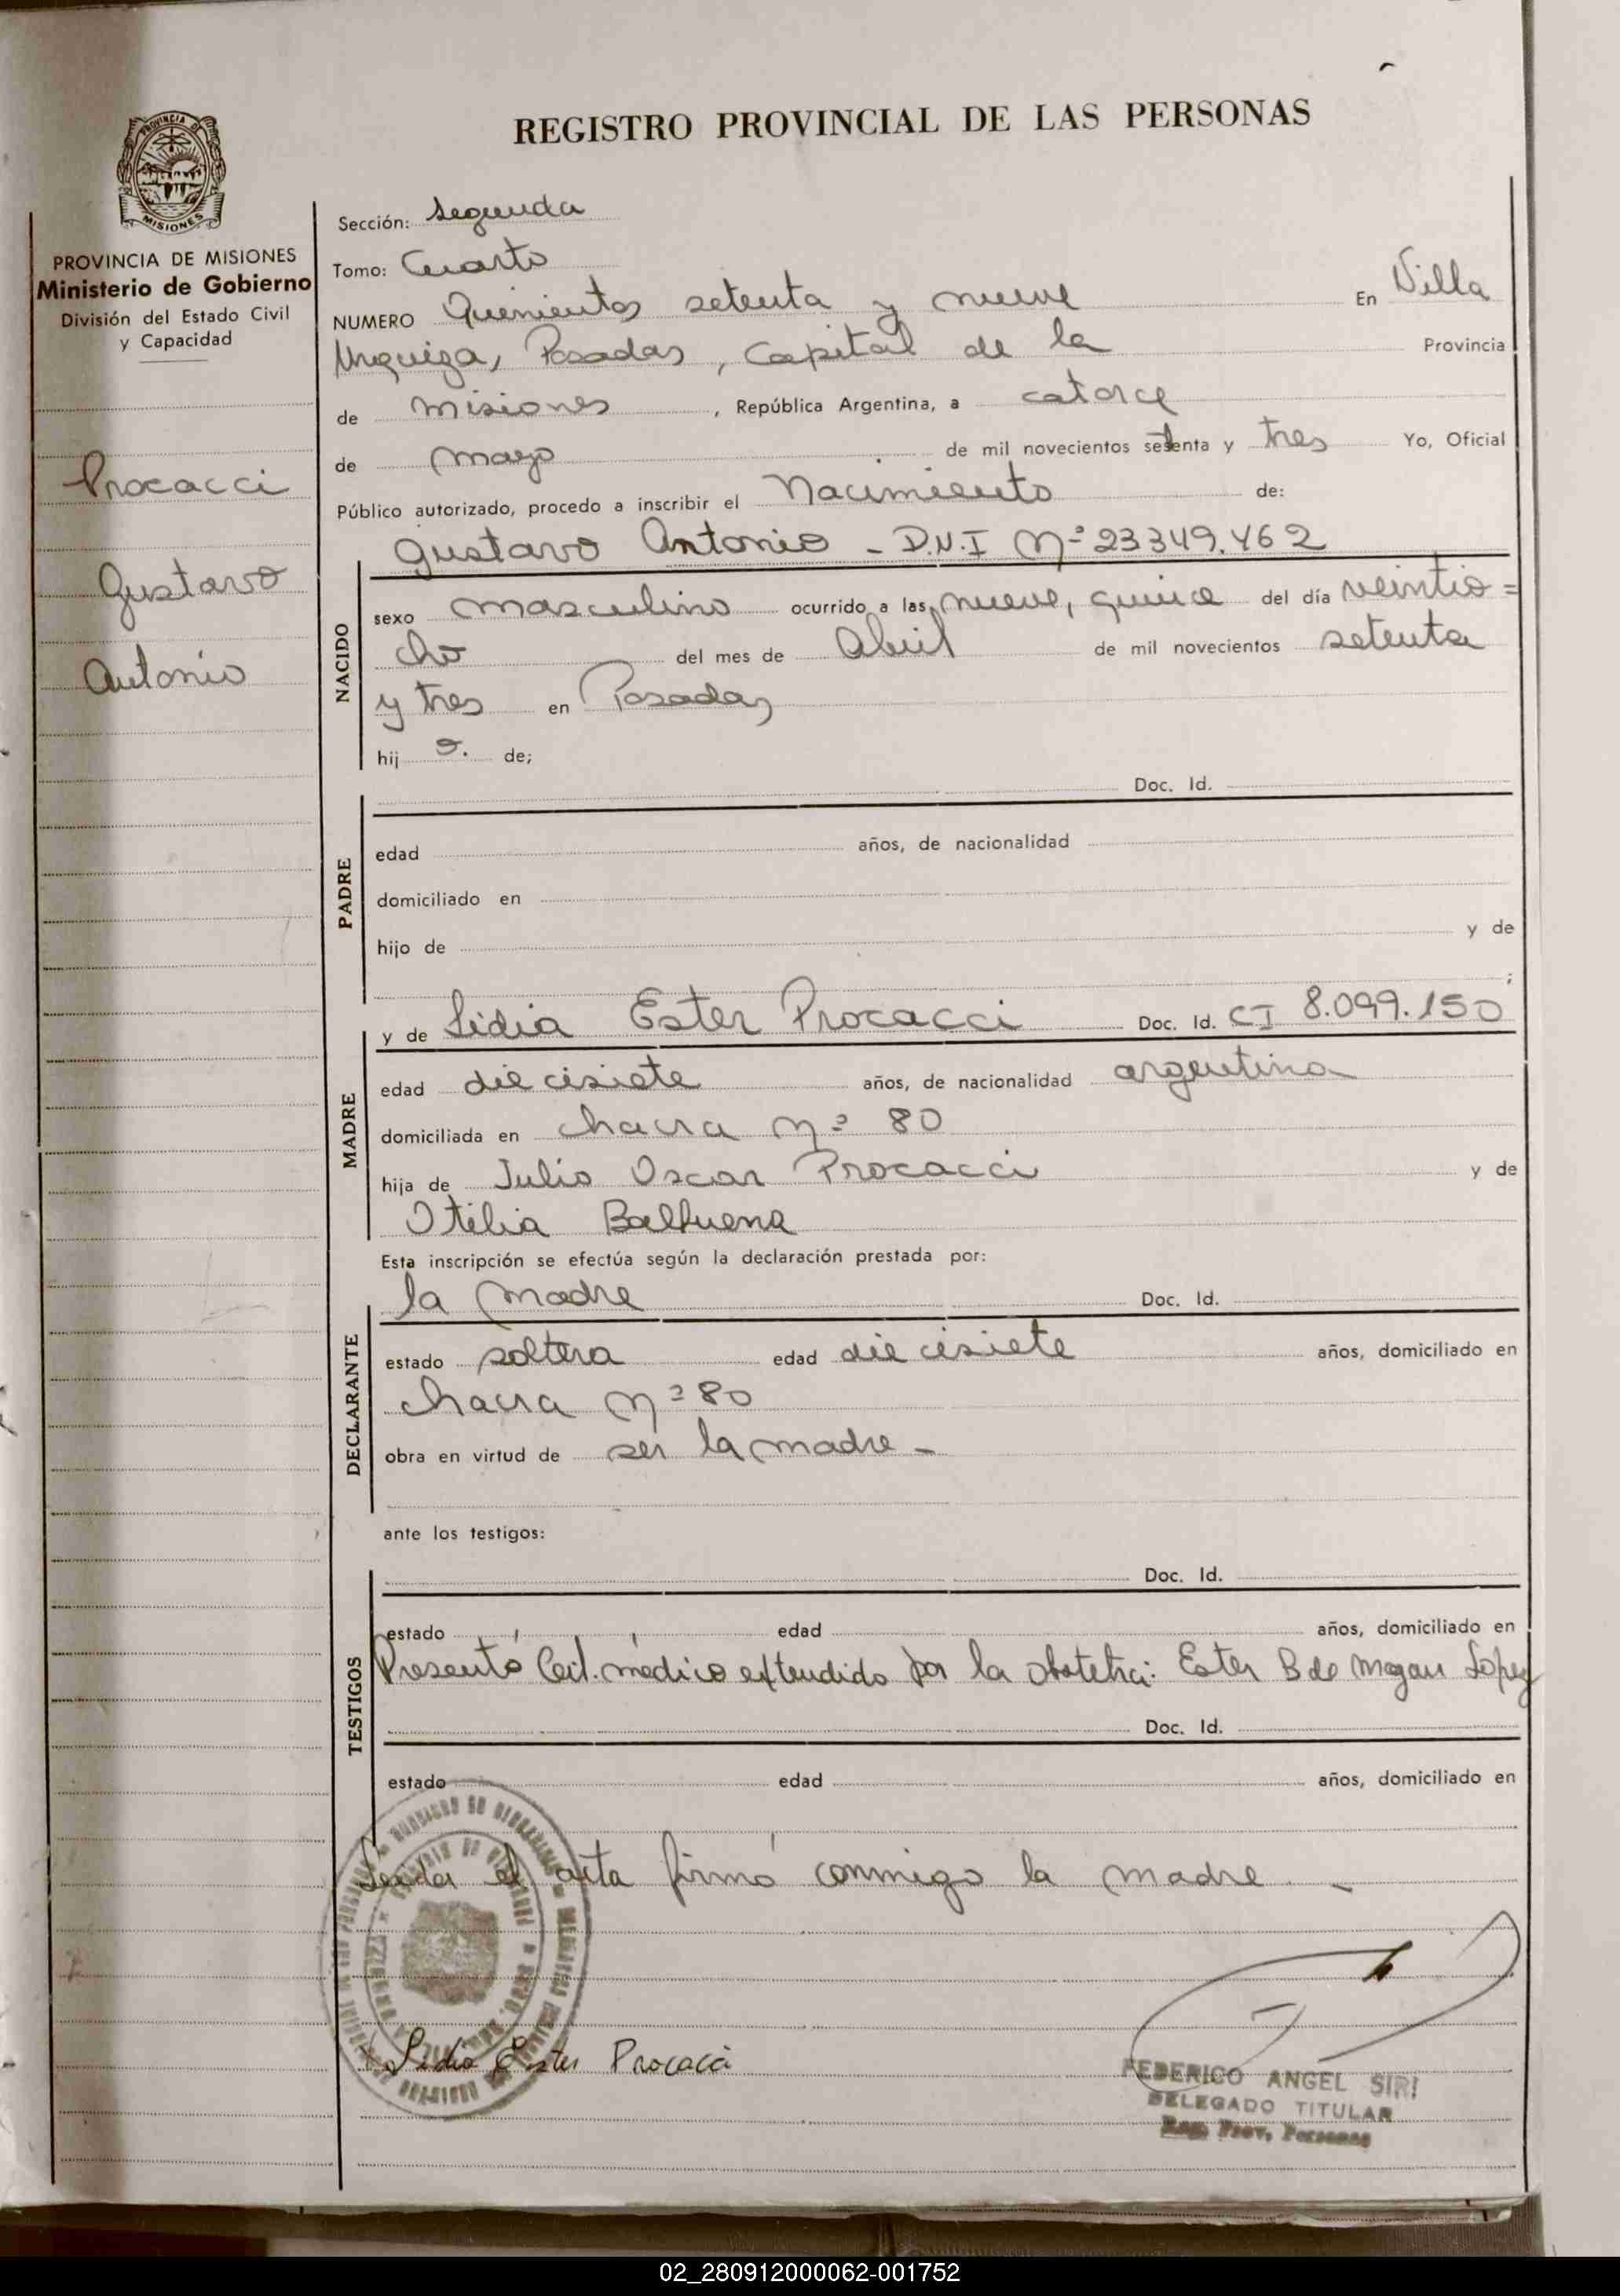 REGISTRO PROVINCIAL DE LAS PERSONAS
PROVINCIA DE MISIONES
PROVINCIA DE MISIONES
Ministerio de Gobierno
División del Estado Civil
y Capacidad
Procacci
Gustavo
Antonio
Sección: Segunda
Tomo: Cuarto
NUMERO Quinientos setenta y nueve En Villa
Urquiza, Posadas, Capital de la Provincia
de Misiones, República Argentina, a catorce
de mayo de mil novecientos setenta y tres Yo, Oficial
Público autorizado, procedo a inscribir el Nacimiento de:
Gustavo Antonio - D.N.I Nº 23349.462
NACIDO
sexo masculino ocurrido a las nueve, quince del día veintio=
cho del mes de Abril de mil novecientos setenta
y tres en Posadas
hij o. de;
Doc. Id.
PADRE
edad años, de nacionalidad
domiciliado en
hijo de y de
;
y de Lidia Ester Procacci Doc. Id. CI 8.099.150
MADRE
edad diecisiete años, de nacionalidad argentina
domiciliada en chacra Nº 80
hija de Julio Oscar Procacci y de
Otilia Balbuena
Esta inscripción se efectúa según la declaración prestada por:
la madre Doc. Id.
DECLARANTE
estado soltera edad diecisiete años, domiciliado en
chacra Nº 80
obra en virtud de ser la madre -
ante los testigos:
Doc. Id.
TESTIGOS
estado edad años, domiciliado en
Presentó Cert. médico extendido por la obstetra: Ester B de Lopez
Doc. Id.
estado edad años, domiciliado en
Leída el acta firmó conmigo la madre -
Lidia Ester Procacci
FEDERICO ANGEL SIRI
DELEGADO TITULAR
Reg. Prov. Personas
02_280912000062-001752